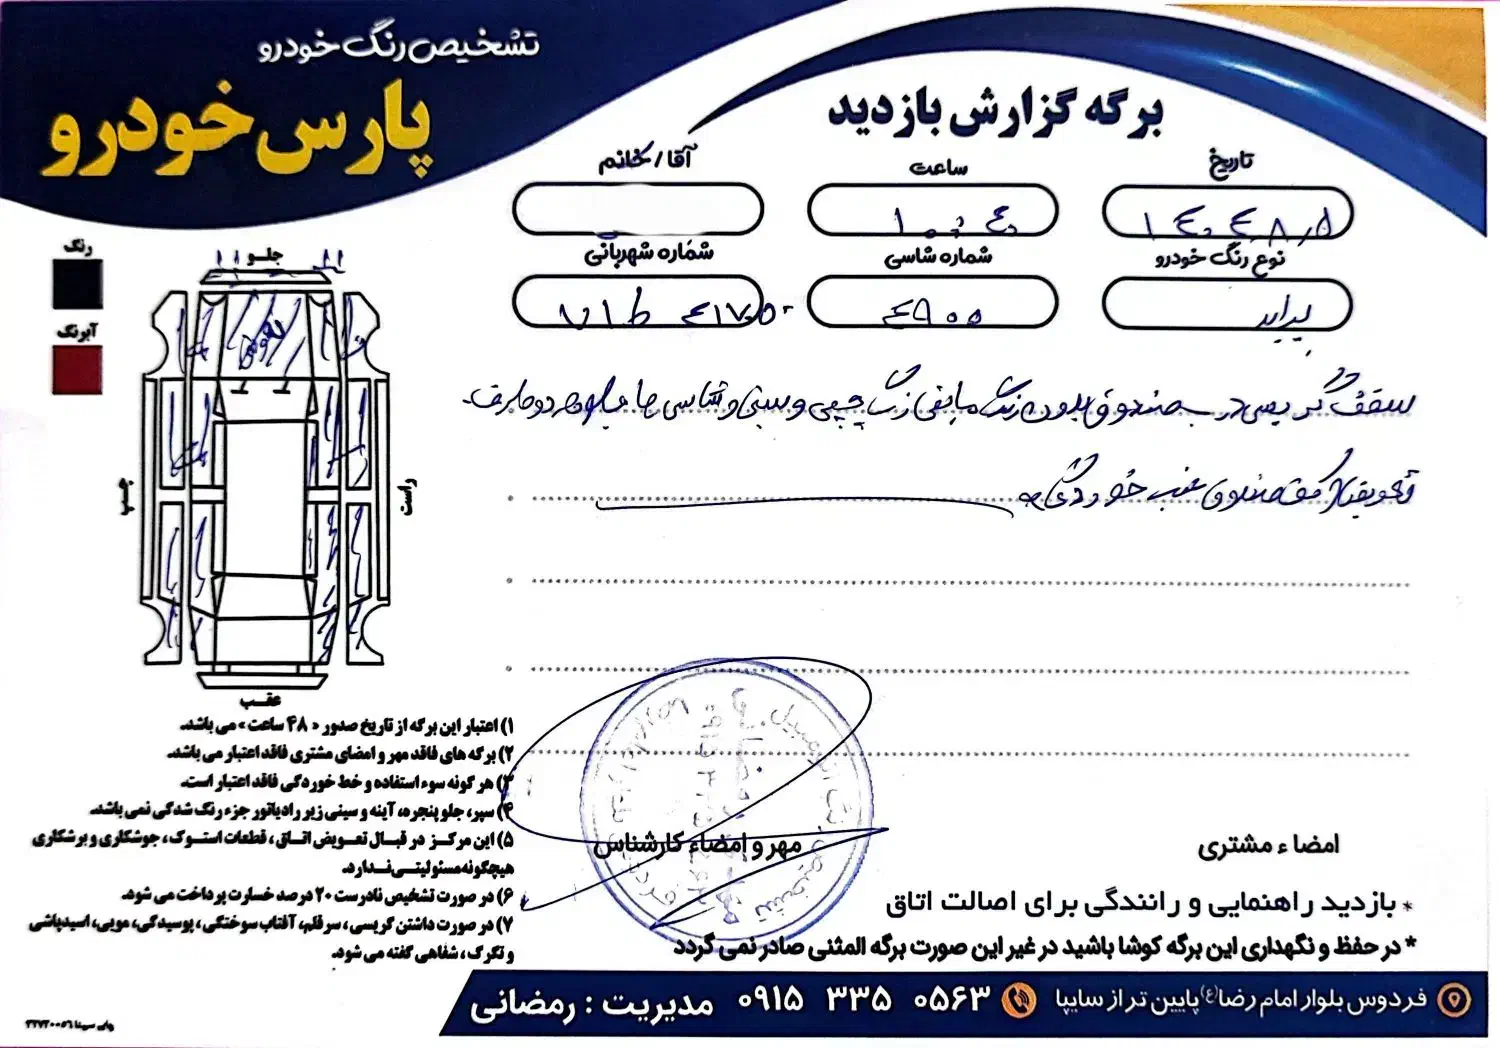 تشخیص رنگ خودرو
پارس خودرو
برگه گزارش بازدید
تاریخ
ساعت
آقا / خانم
۱۴۰۴,۸,۵
۱۰:۴۰
نوع رنگ خودرو
شماره شاسی
شماره شهربانی
پراید
۴۹۵۵
۷۱ ط ۴۱۷
سقف در صندوق بدون رنگ مابقی رنگ چپی و ستون و شاسی ها جلو هر دو طرف
کف صندوق عقب خوردگی
رنگ
آبرنگ
جلو
تعویض
چپ
راست
عقب
۱) اعتبار این برگه از تاریخ صدور «۴۸ ساعت» می باشد.
۲) برگه های فاقد مهر و امضای مشتری فاقد اعتبار می باشد.
۳) هر گونه سوء استفاده و خط خوردگی فاقد اعتبار است.
۴) سپر، جلو پنجره، آینه و سینی زیر رادیاتور جزء رنگ شدگی نمی باشد.
۵) این مرکز در قبال تعویض اتاق، قطعات استوک، جوشکاری و برشکاری
هیچگونه مسئولیتی ندارد.
۶) در صورت تشخیص نادرست ۲۰ درصد خسارت پرداخت می شود.
۷) در صورت داشتن گریسی، سرقلم، آفتاب سوختگی، پوسیدگی، مویی، اسیدپاشی
و تگرگ، شفاهی گفته می شود.
مهر و امضاء کارشناس
امضاء مشتری
* بازدید راهنمایی و رانندگی برای اصالت اتاق
* در حفظ و نگهداری این برگه کوشا باشید در غیر این صورت برگه المثنی صادر نمی گردد
فردوس بلوار امام رضا(ع) پایین تر از سایپا
۰۹۱۵ ۳۳۵ ۰۵۶۳
مدیریت : رمضانی